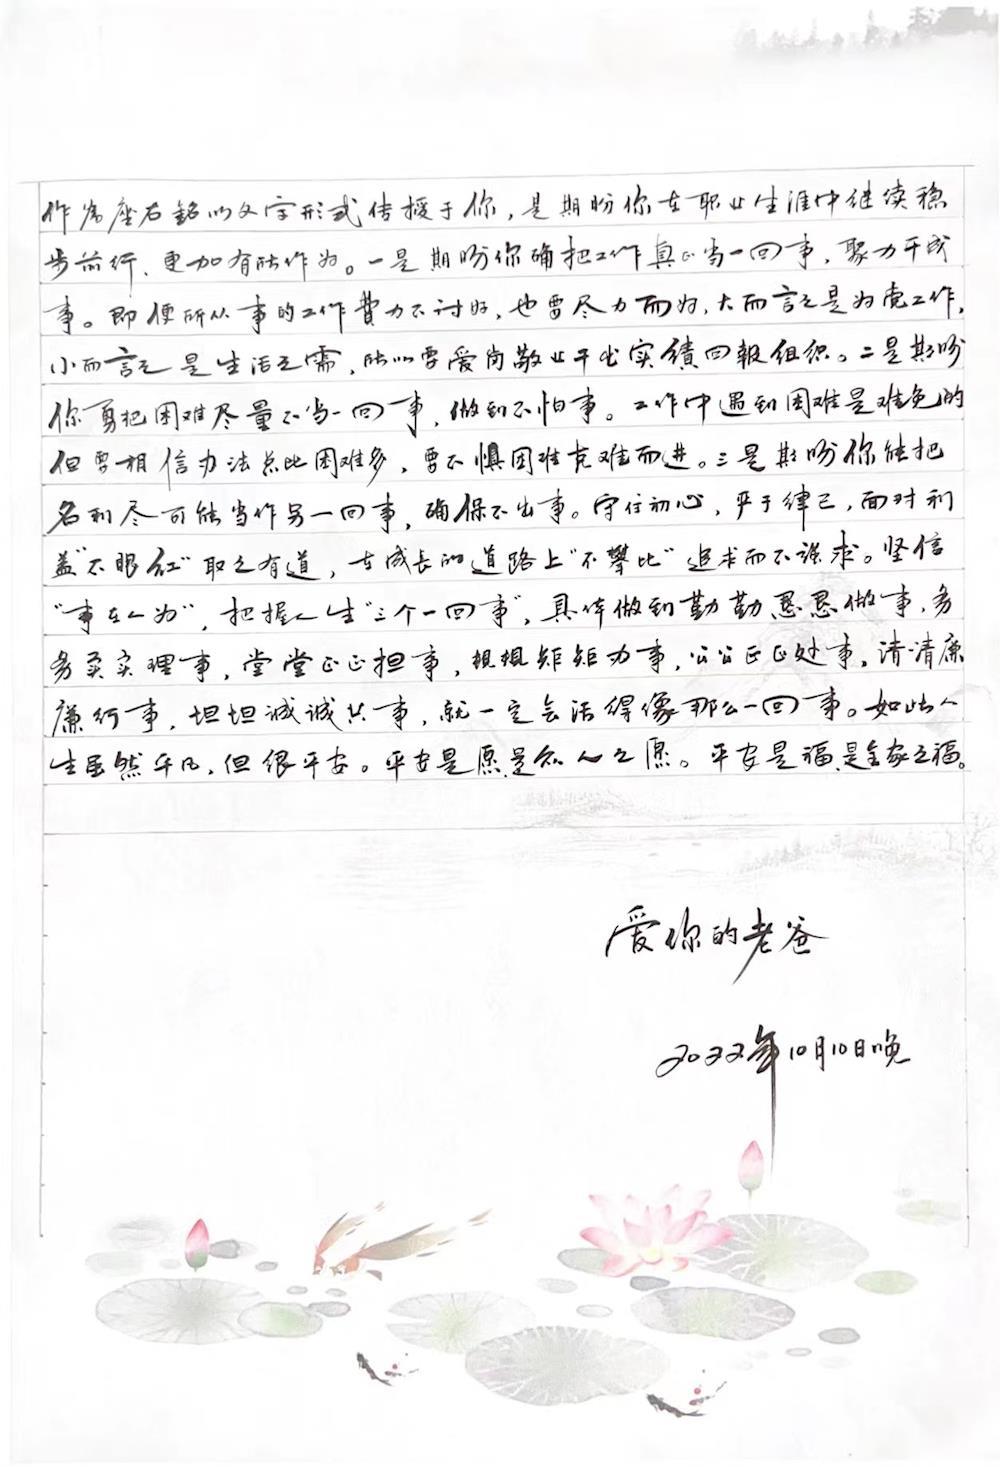 作为座右铭以文字形式传授于你，是期盼你在职业生涯中继续稳
步前行、更加有所作为。一是期盼你确把工作真正当一回事，聚力干成
事。即便所从事的工作费力不讨好，也要尽力而为，大而言之是为党工作，
小而言之是生活之需，所以要爱岗敬业干出实绩回报组织。二是期盼
你勇把困难尽量不当一回事，做到不怕事。工作中遇到困难是难免的
但要相信办法总比困难多，要不惧困难克难而进。三是期盼你能把
名利尽可能当作另一回事，确保不出事。守住初心，严于律己，面对利
益“不眼红”取之有道，在成长的道路上“不攀比”追求而不强求。坚信
“事在人为”，把握人生“三个一回事”，具体做到勤勤恳恳做事，务
务实实理事，堂堂正正担事，规规矩矩办事，公公正正处事，清清廉
廉行事，坦坦诚诚共事，就一定会活得像那么一回事。如此人
生虽然平凡，但很平安。平安是愿，是众人之愿。平安是福，是全家之福。
爱你的老爸
2022年10月10日晚